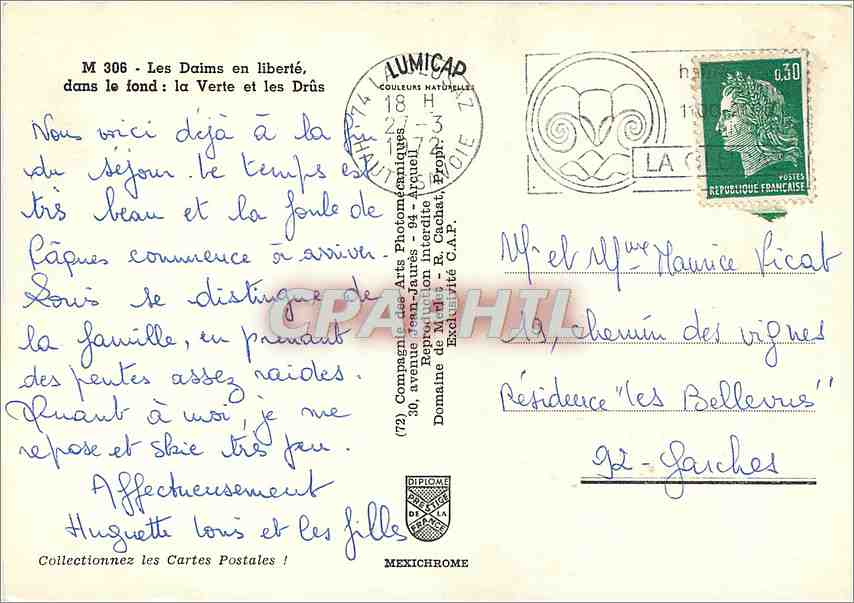 M 306 - Les Daims en liberté,
dans le fond : la Verte et les Drûs
Nous voici déjà à la fin
du séjour. Le temps est
très beau et la foule de
Pâques commence à arriver.
Louis se distingue de
la famille, en prenant
des pentes assez raides.
Quant à moi, je me
repose et skie très peu.
Affectueusement
Huguette Louis et les filles
Collectionnez les Cartes Postales !
LUMICAP
COULEURS NATURELLES
74 LA CLUSAZ
18 H
27-3
1972
HAUTE SAVOIE
LA CLUSAZ
0,30
POSTES
REPUBLIQUE FRANÇAISE
(72) Compagnie des Arts Photomécaniques
30, avenue Jean-Jaurès - 94 - Arcueil
Reproduction Interdite
Domaine de Merlet - R. Cachat, Propr.
Exclusivité C.A.P.
CPA-PHIL
DIPLOME
PRESTIGE
DE LA
FRANCE
MEXICHROME
Mr et Mme Maurice Vicat
19, chemin des vignes
Résidence "les Bellevues"
92 - Garches